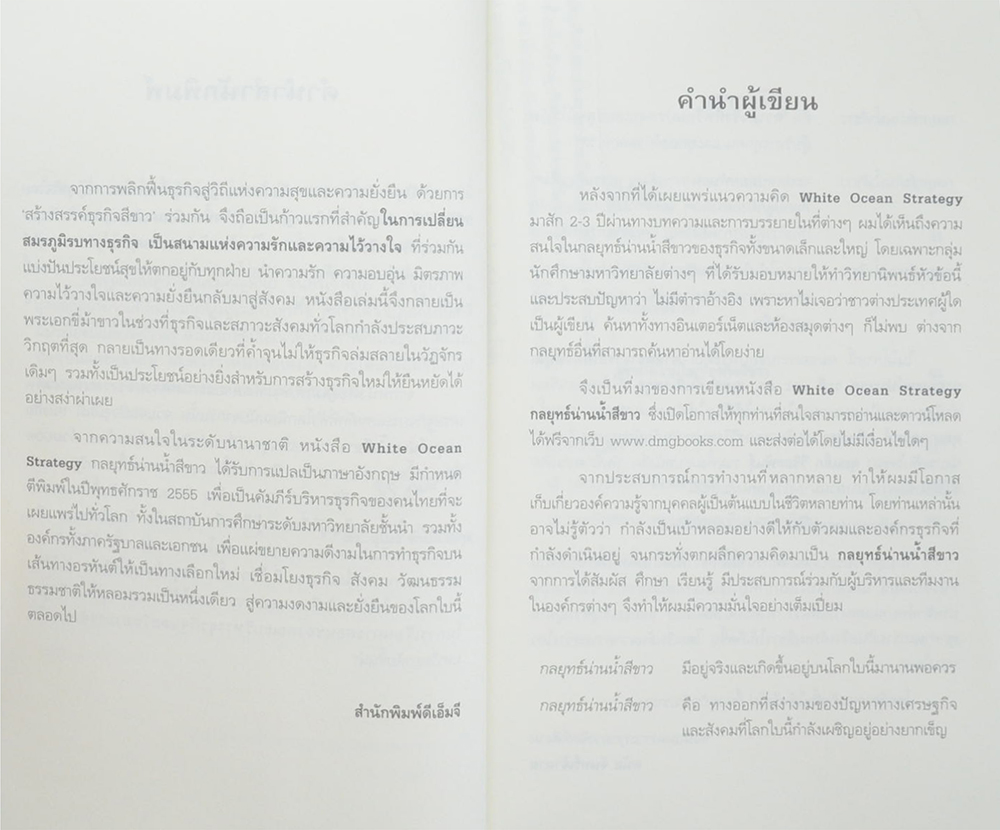 จากการพลิกฟื้นธุรกิจสู่วิถีแห่งความสุขและความยั่งยืน ด้วยการ
'สร้างสรรค์ธุรกิจสีขาว' ร่วมกัน จึงถือเป็นก้าวแรกที่สำคัญในการเปลี่ยน
สมรภูมิรบทางธุรกิจ เป็นสนามแห่งความรักและความไว้วางใจ ที่ร่วมกัน
แบ่งปันประโยชน์สุขให้ตกอยู่กับทุกฝ่าย นำความรัก ความอบอุ่น มิตรภาพ
ความไว้วางใจและความยั่งยืนกลับมาสู่สังคม หนังสือเล่มนี้จึงกลายเป็น
พระเอกขี่ม้าขาวในช่วงที่ธุรกิจและสภาวะสังคมทั่วโลกกำลังประสบภาวะ
วิกฤตที่สุด กลายเป็นทางรอดเดียวที่ค้ำจุนไม่ให้ธุรกิจล่มสลายในวัฏจักร
เดิมๆ รวมทั้งเป็นประโยชน์อย่างยิ่งสำหรับการสร้างธุรกิจใหม่ให้ยืนหยัดได้
อย่างสง่าผ่าเผย
จากความสนใจในระดับนานาชาติ หนังสือ White Ocean
Strategy กลยุทธ์น่านน้ำสีขาว ได้รับการแปลเป็นภาษาอังกฤษ มีกำหนด
ตีพิมพ์ในปีพุทธศักราช 2555 เพื่อเป็นคัมภีร์บริหารธุรกิจของคนไทยที่จะ
เผยแพร่ไปทั่วโลก ทั้งในสถาบันการศึกษาระดับมหาวิทยาลัยชั้นนำ รวมทั้ง
องค์กรทั้งภาครัฐบาลและเอกชน เพื่อแผ่ขยายความดีงามในการทำธุรกิจบน
เส้นทางอรหันต์ให้เป็นทางเลือกใหม่ เชื่อมโยงธุรกิจ สังคม วัฒนธรรม
ธรรมชาติให้หลอมรวมเป็นหนึ่งเดียว สู่ความงดงามและยั่งยืนของโลกใบนี้
ตลอดไป
สำนักพิมพ์ดีเอ็มจี
คำนำผู้เขียน
หลังจากที่ได้เผยแพร่แนวความคิด White Ocean Strategy
มาสัก 2-3 ปีผ่านทางบทความและการบรรยายในที่ต่างๆ ผมได้เห็นถึงความ
สนใจในกลยุทธ์น่านน้ำสีขาวของธุรกิจทั้งขนาดเล็กและใหญ่ โดยเฉพาะกลุ่ม
นักศึกษามหาวิทยาลัยต่างๆ ที่ได้รับมอบหมายให้ทำวิทยานิพนธ์หัวข้อนี้
และประสบปัญหาว่า ไม่มีตำราอ้างอิง เพราะหาไม่เจอว่าชาวต่างประเทศผู้ใด
เป็นผู้เขียน ค้นหาทั้งทางอินเตอร์เน็ตและห้องสมุดต่างๆ ก็ไม่พบ ต่างจาก
กลยุทธ์อื่นที่สามารถค้นหาอ่านได้โดยง่าย
จึงเป็นที่มาของการเขียนหนังสือ White Ocean Strategy
กลยุทธ์น่านน้ำสีขาว ซึ่งเปิดโอกาสให้ทุกท่านที่สนใจสามารถอ่านและดาวน์โหลด
ได้ฟรีจากเว็บ www.dmgbooks.com และส่งต่อได้โดยไม่มีเงื่อนไขใดๆ
จากประสบการณ์การทำงานที่หลากหลาย ทำให้ผมมีโอกาส
เก็บเกี่ยวองค์ความรู้จากบุคคลผู้เป็นต้นแบบในชีวิตหลายท่าน โดยท่านเหล่านั้น
อาจไม่รู้ตัวว่า กำลังเป็นเบ้าหลอมอย่างดีให้กับตัวผมและองค์กรธุรกิจที่
กำลังดำเนินอยู่ จนกระทั่งตกผลึกความคิดมาเป็น กลยุทธ์น่านน้ำสีขาว
จากการได้สัมผัส ศึกษา เรียนรู้ มีประสบการณ์ร่วมกับผู้บริหารและทีมงาน
ในองค์กรต่างๆ จึงทำให้ผมมีความมั่นใจอย่างเต็มเปี่ยม
กลยุทธ์น่านน้ำสีขาว มีอยู่จริงและเกิดขึ้นอยู่บนโลกใบนี้มานานพอควร
กลยุทธ์น่านน้ำสีขาว คือ ทางออกที่สง่างามของปัญหาทางเศรษฐกิจ
และสังคมที่โลกใบนี้กำลังเผชิญอยู่อย่างยากเข็ญ